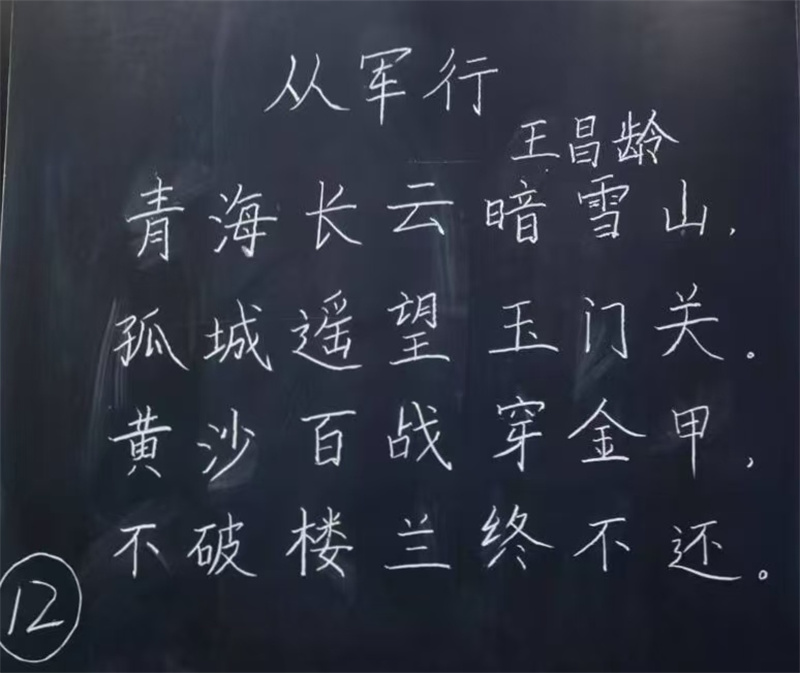 从军行
王昌龄
青海长云暗雪山,
孤城遥望玉门关。
黄沙百战穿金甲,
不破楼兰终不还。
12